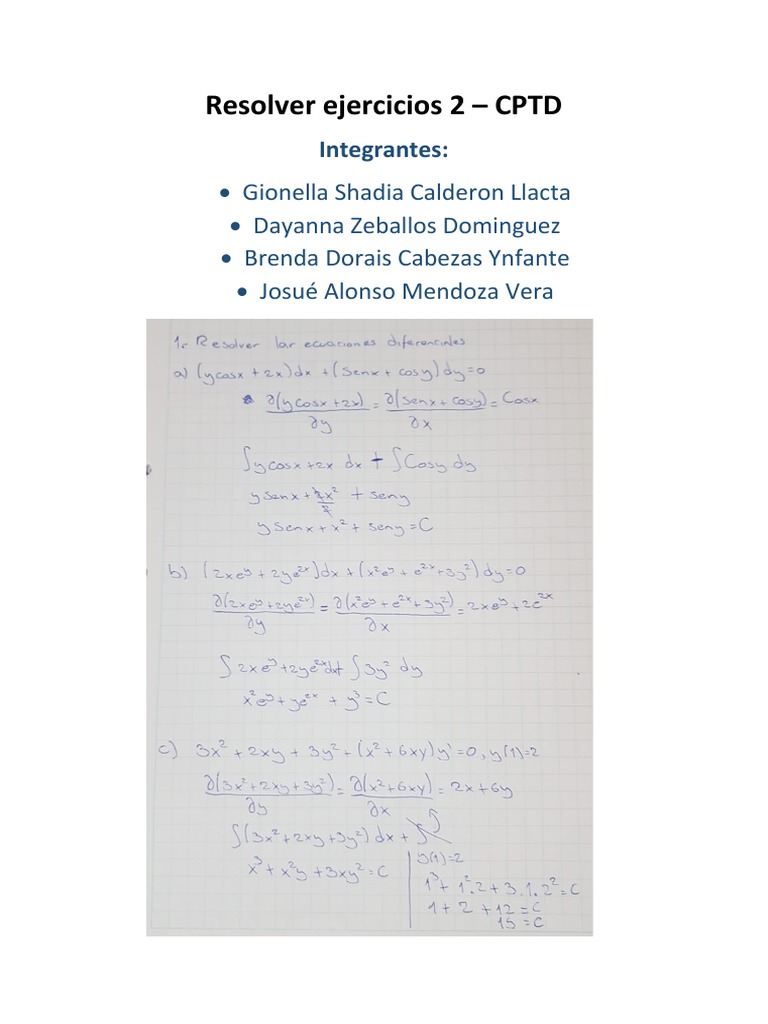 Resolver ejercicios 2 – CPTD
Integrantes:
• Gionella Shadia Calderon Llacta
• Dayanna Zeballos Dominguez
• Brenda Dorais Cabezas Ynfante
• Josué Alonso Mendoza Vera
1. Resolver las ecuaciones diferenciales
a) (ycosx + 2x)dx + (senx + cosy)dy = 0
∂(ycosx + 2x)/∂y = ∂(senx + cosy)/∂x = Cosx
∫ycosx + 2x dx + ∫Cosy dy
ysenx + 2x²/2 + seny
ysenx + x² + seny = C
b) (2xe^y + 2ye^2x)dx + (x²e^y + e^2x + 3y²)dy = 0
∂(2xe^y + 2ye^2x)/∂y = ∂(x²e^y + e^2x + 3y²)/∂x = 2xe^y + 2e^2x
∫2xe^y + 2ye^2x dx + ∫3y² dy
x²e^y + ye^2x + y³ = C
c) 3x² + 2xy + 3y² + (x² + 6xy)y' = 0, y(1) = 2
∂(3x² + 2xy + 3y²)/∂y = ∂(x² + 6xy)/∂x = 2x + 6y
∫(3x² + 2xy + 3y²)dx + ∫
x³ + x²y + 3xy² = C
y(1) = 2
1³ + 1².2 + 3.1.2² = C
1 + 2 + 12 = C
15 = C